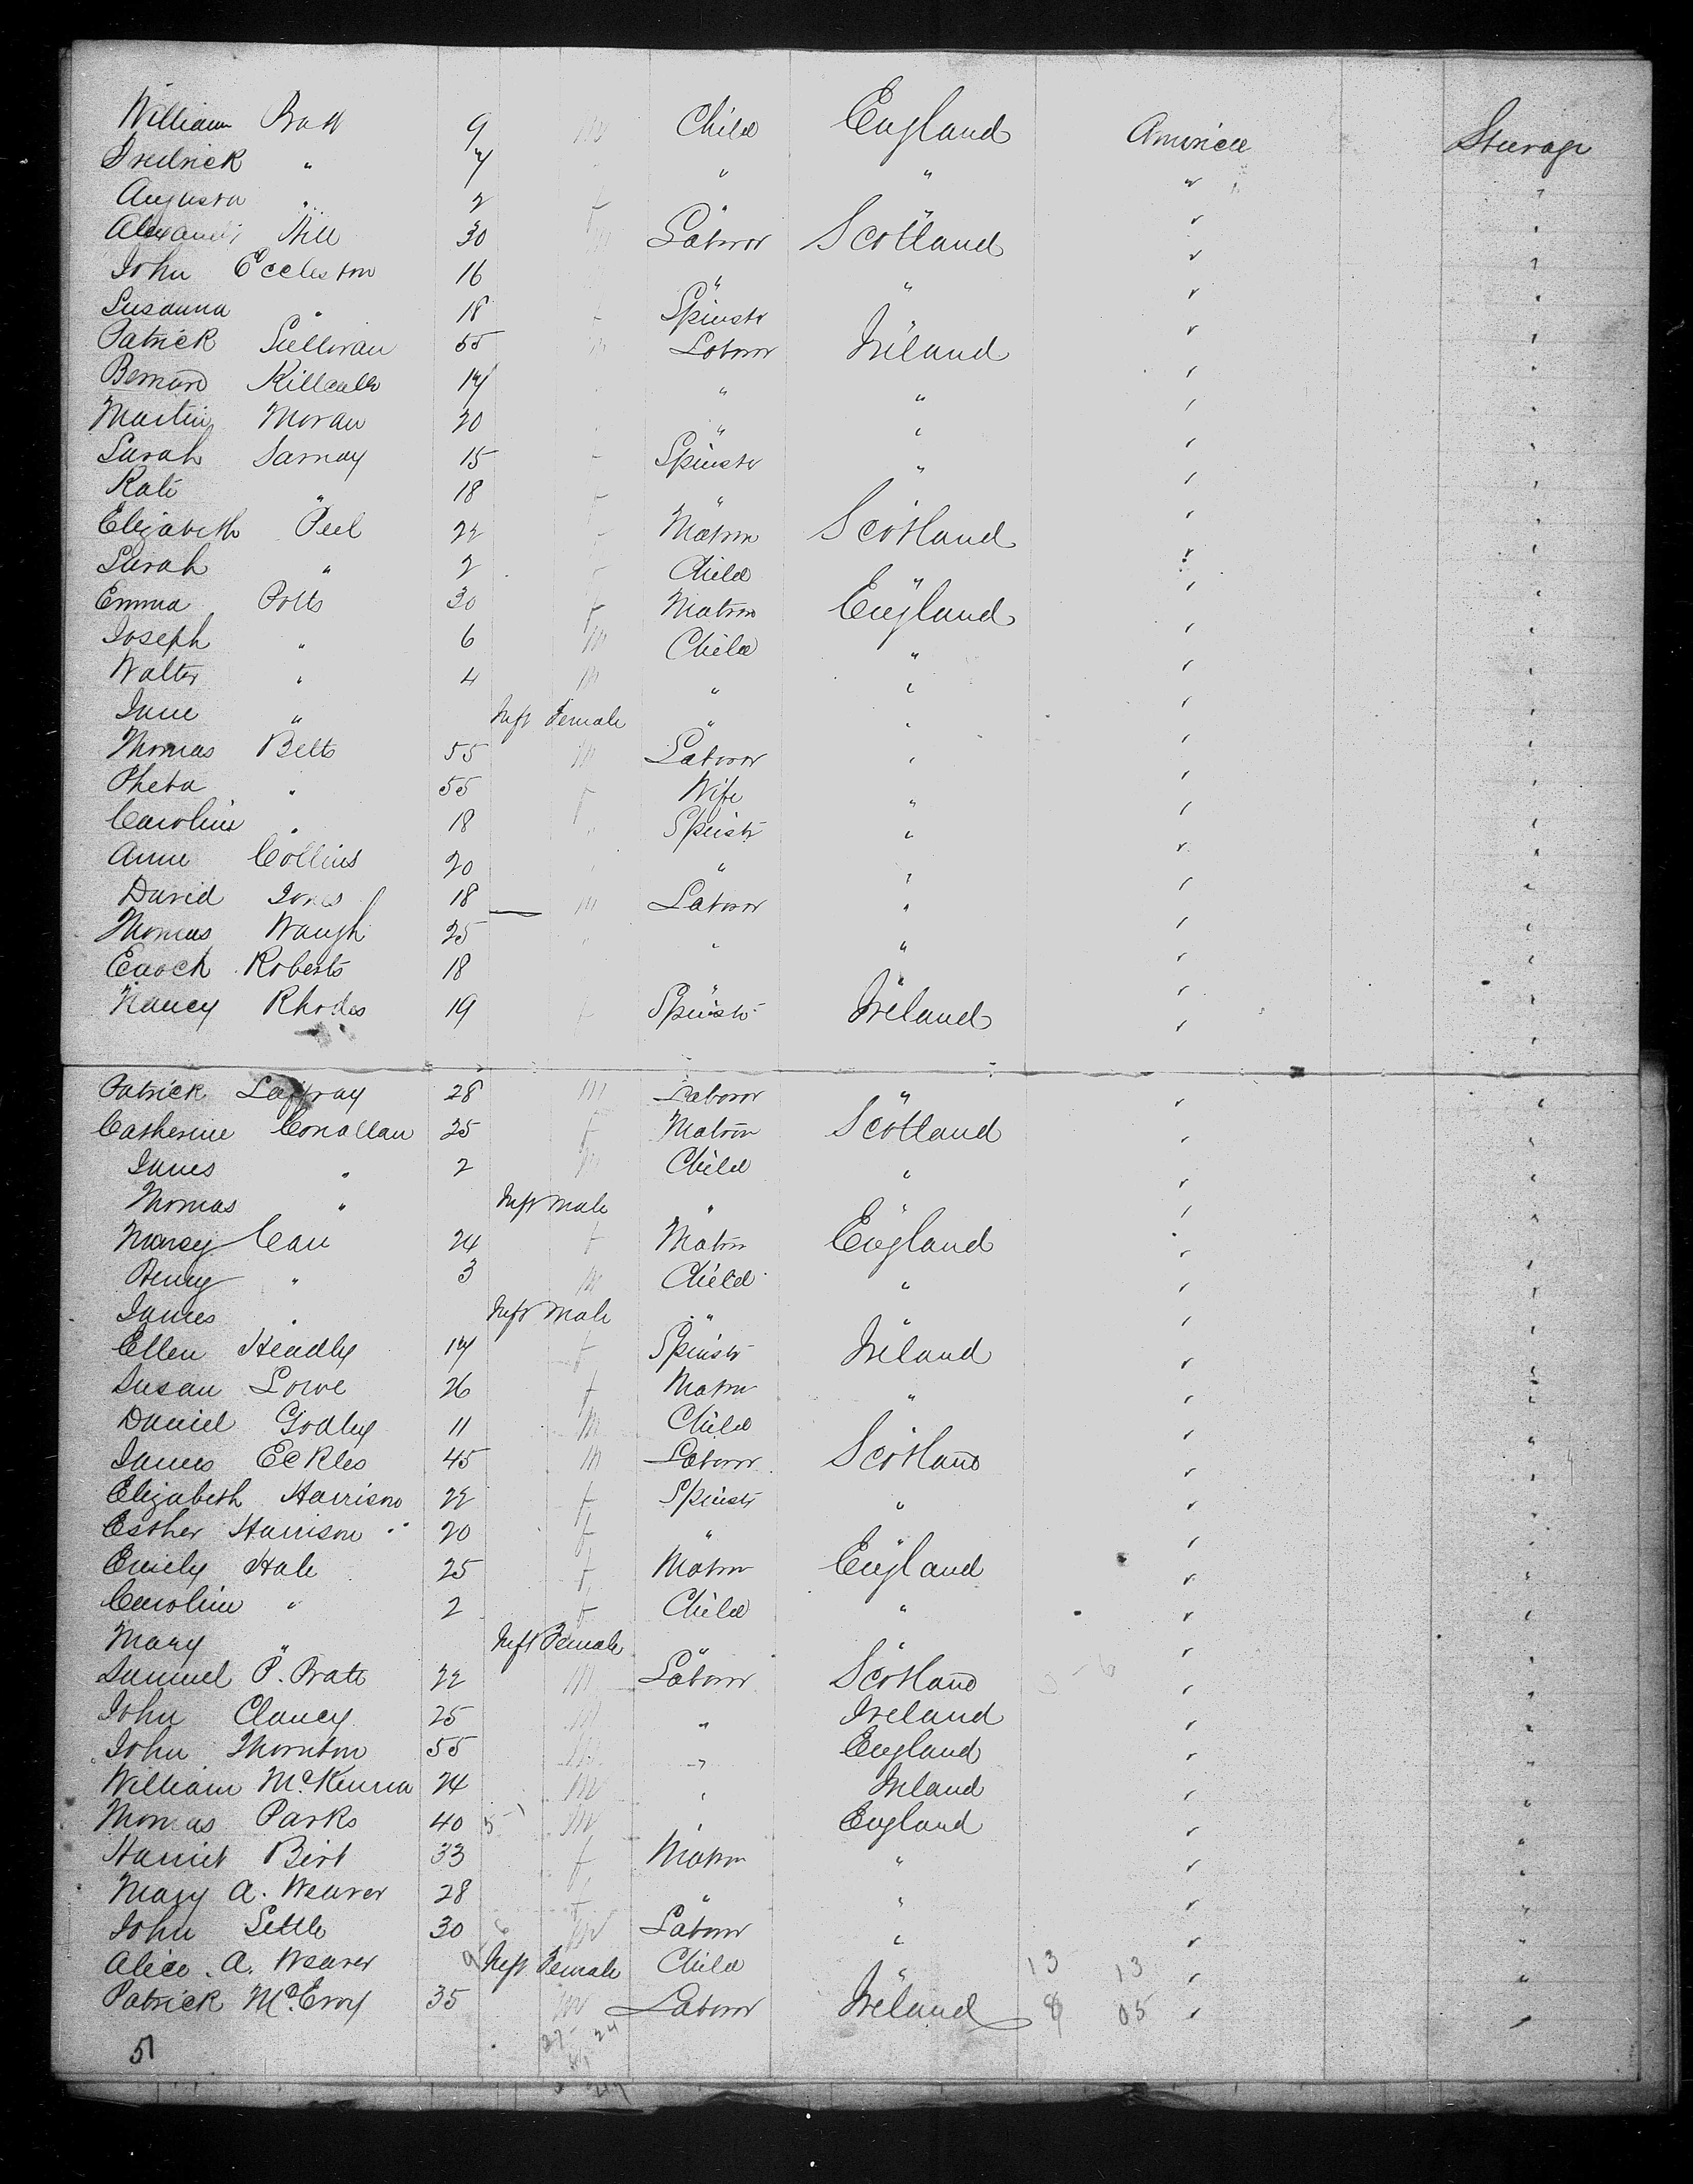 William Bratt 9 m Child England America Steerage
Fredrick " 7 " " " "
Augusta " 2 f " " " "
Alexander Hill 30 m Laboror Scotland " "
John Eccleston 16 " " " "
Susanna " 18 Spinstr " " "
Patrick Sullivan 55 m Laboror Ireland " "
Bernard 17 " " " "
Martin Moran 20 " " " "
Sarah 15 Spinstr " " "
Kate " 18 " " " "
Elizabeth Peel 22 Matron Scotland " "
Sarah " 2 Child " " "
Emma Potts 30 f Matron England " "
Joseph " 6 m Child " " "
Walter " 4 m " " " "
Jane " Inft Female " " " "
Thomas Belts 55 m Laboror " " "
Pheba " 55 f Wife " " "
Caroline " 18 " Spinstr " " "
Anne Collins 20 " " " " "
David Jones 18 m Laboror " " "
Thomas Waugh 25 " " " " "
Enoch Roberts 18 " " " "
Nancy Rhodes 19 f Spinstr Ireland " "
Patrick 28 m Laboror " " "
Catherine Conallan 25 f Matron Scotland " "
James " 2 m Child " " "
Thomas " Inft male " " " "
Nancy 24 f Matrn England " "
Henry " 3 m Child " " "
James " Inft male " " " "
Ellen Headly 17 f Spinstr Ireland " "
Susan Lowe 26 f Matrn " " "
Daniel Godley 11 m Child " " "
James Eckles 45 m Laboror Scotland " "
Elizabeth Harrison 22 f Spinstr " " "
Esther Harrison 20 f " " " "
Emily Hale 25 f Matrn England " "
Caroline " 2 f Child " " "
Mary " Inft Female " " " "
Samuel P. Pratt 22 m Laboror Scotland " "
John Clancy 25 m " Ireland " "
John Thornton 55 m " England " "
William McKenna 24 m " Ireland " "
Thomas Parks 40 m " England " "
Harriet Birt 33 f Matrn " " "
Mary A. Weaver 28 f " " " "
John Settle 30 m Laboror " " "
Alice A. Weaver Inft Female Child " 13 13 " "
Patrick McEvoy 35 m Laboror Ireland 8 05 " "
51 27 24